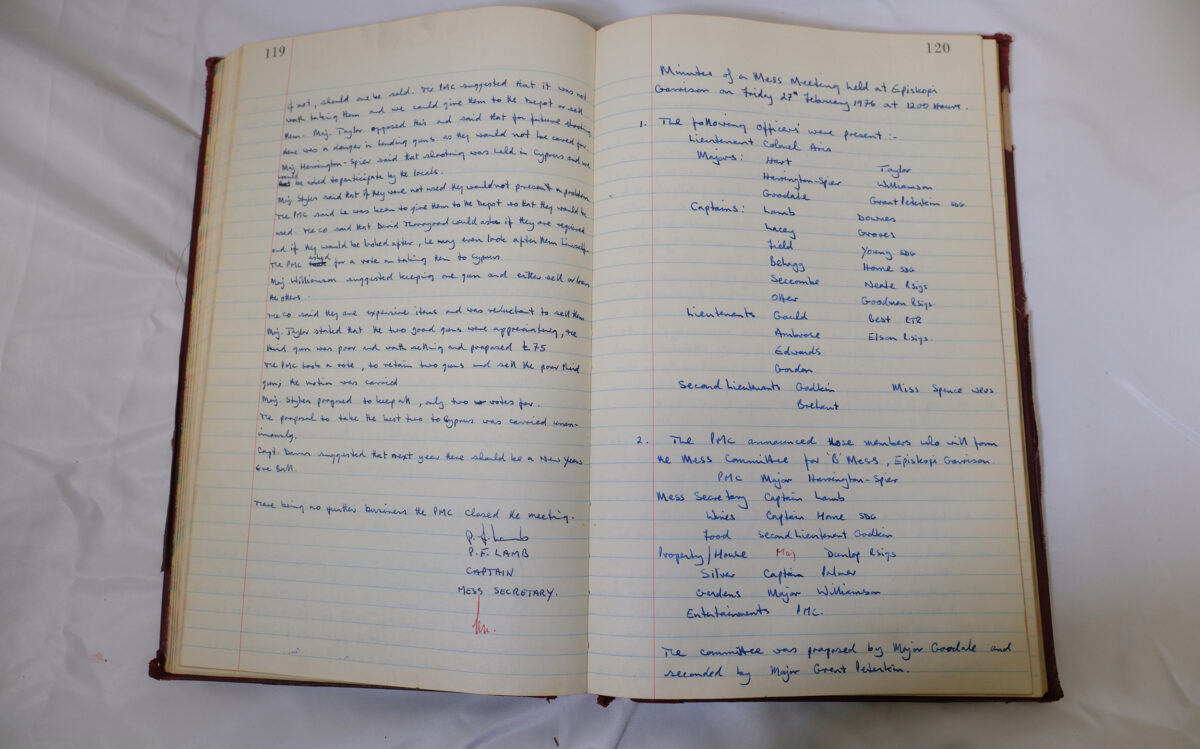 119
if not, should one be sold. The PMC suggested that it was not
worth taking them and we could give them to the Depot or sell
them. Maj. Taylor opposed this and said that for future shooting
there was a danger in lending guns as they would not be cared for.
Maj Harrington-Spier said that shooting was held in Cyprus and we
would be asked to participate by the locals.
Maj Styles said that if they were not used they would not present a problem
The PMC said he was keen to give them to the Depot so that they would be
used. The CO said that David Thorogood could advise if they are registered
and if they would be looked after, he may even look after them himself.
The PMC asked for a vote on taking them to Cyprus.
Maj Williamson suggested keeping one gun and either sell or loan
the others.
The CO said they are expensive items and was reluctant to sell them
Maj. Taylor stated that the two good guns were appreciating, the
third gun was poor and worth selling and proposed £75
The PMC took a vote, to retain two guns and sell the poor third
gun; the motion was carried
Maj. Styles proposed to keep all, only two votes for.
The proposal to take the best two to Cyprus was carried unan-
imously.
Capt. suggested that next year there should be a New Years
Eve Ball.
There being no further business the PMC closed the meeting.
P.F. Lamb
P.F. LAMB
CAPTAIN
MESS SECRETARY.
120
Minutes of a Mess Meeting held at Episkopi
Garrison on Friday 27th February 1976 at 1200 Hours.
1. The following officers were present :-
Lieutenant Colonel Anis
Majors: Hart Taylor
Harrington-Spier Williamson
Goodale Grant Peterkin SDG
Captains: Lamb Downes
Lacey Groves
Field Young SDG
Belragg Home SDG
Seccombe Neate Rsigs
Otter Goodman Rsigs.
Lieutenants Gould Best RTR
Ambrose Elson Rsigs.
Edwards
Gordon
Second Lieutenants Godkin Miss Spence WRVS.
Brehaut
2. The PMC announced those members who will form
the Mess Committee for 'B' Mess, Episkopi Garrison.
PMC Major Harrington-Spier
Mess Secretary Captain Lamb
Wines Captain Home SDG
Food Second Lieutenant Godkin
Property/House Maj Dunlop Rsigs
Silver Captain Palmer
Gardens Major Williamson
Entertainments PMC.
The committee was proposed by Major Goodale and
seconded by Major Grant Peterkin.